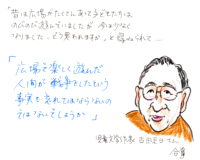 「昔は広場がたくさんあって子どもたちは
のびのび遊んでいましたが 今は少なく
なりました。どう思われますか」と尋ねられて…
「広場で楽しく遊んだ
人間が戦争をしたという
事実を忘れてはならないの
ではないでしょうか」
児童文学作家 古田足日さん